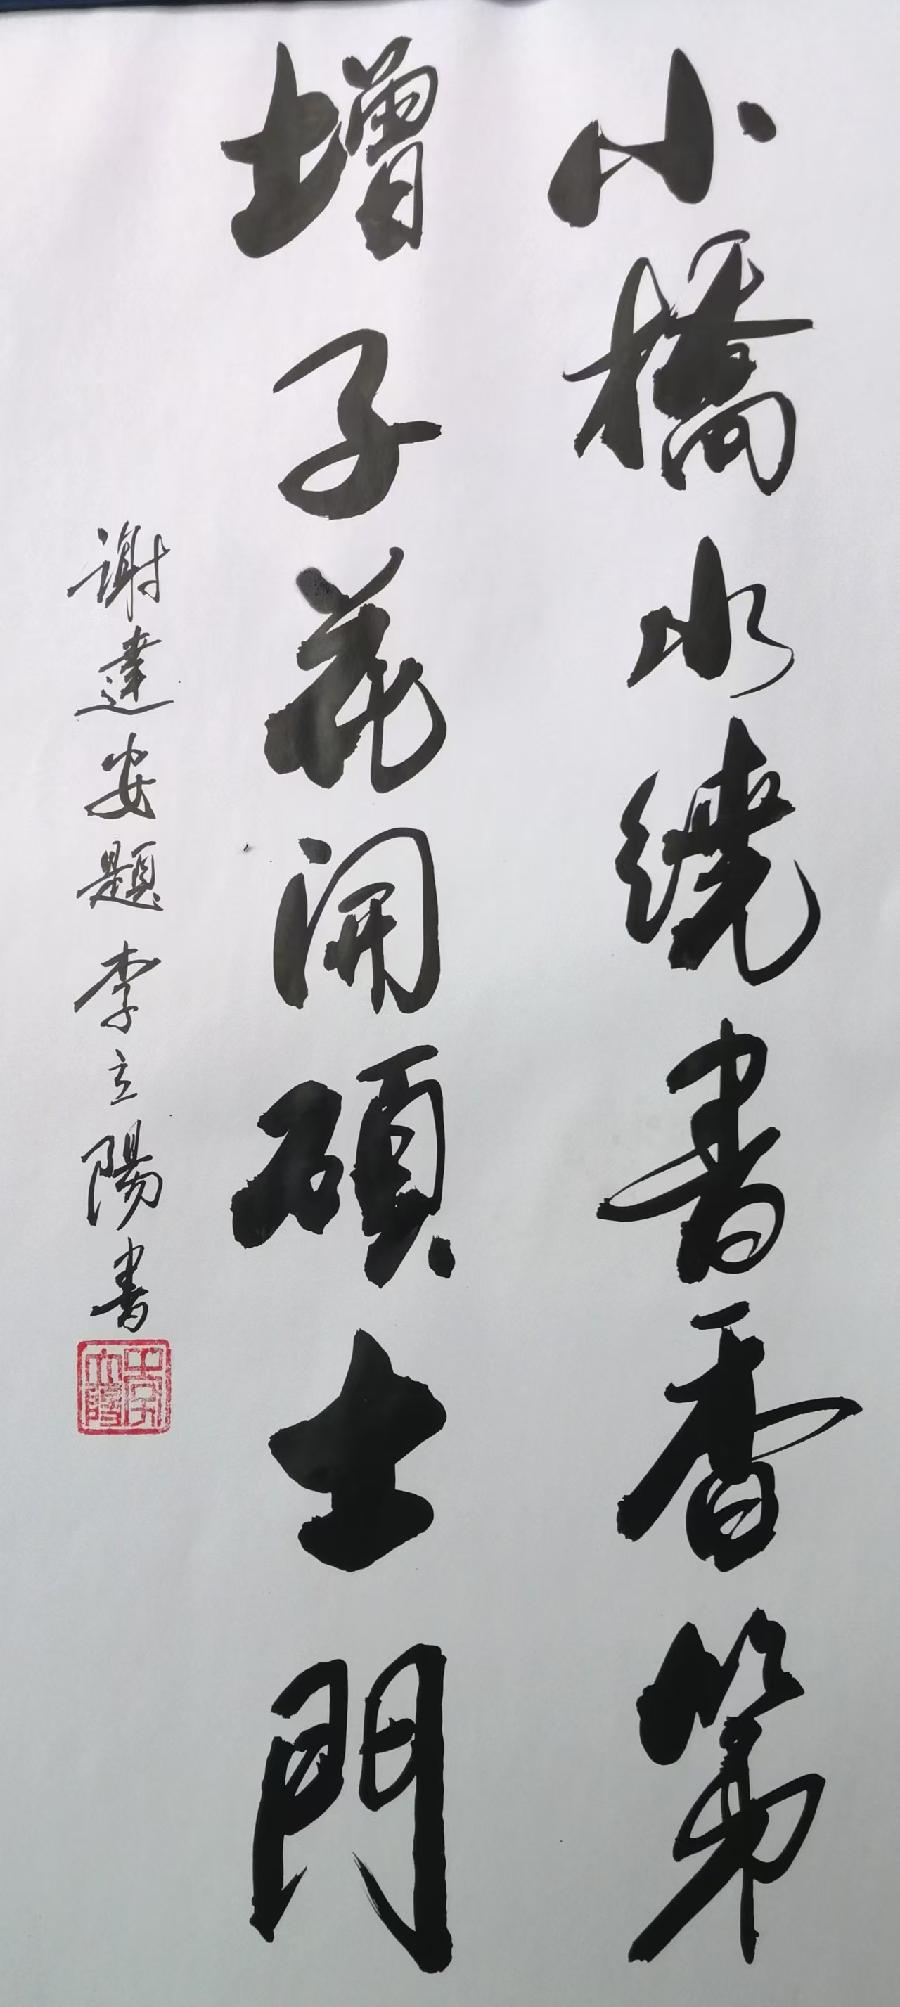 小橋水繞書香第
增子花開碩士門
謝達安題 李立陽書